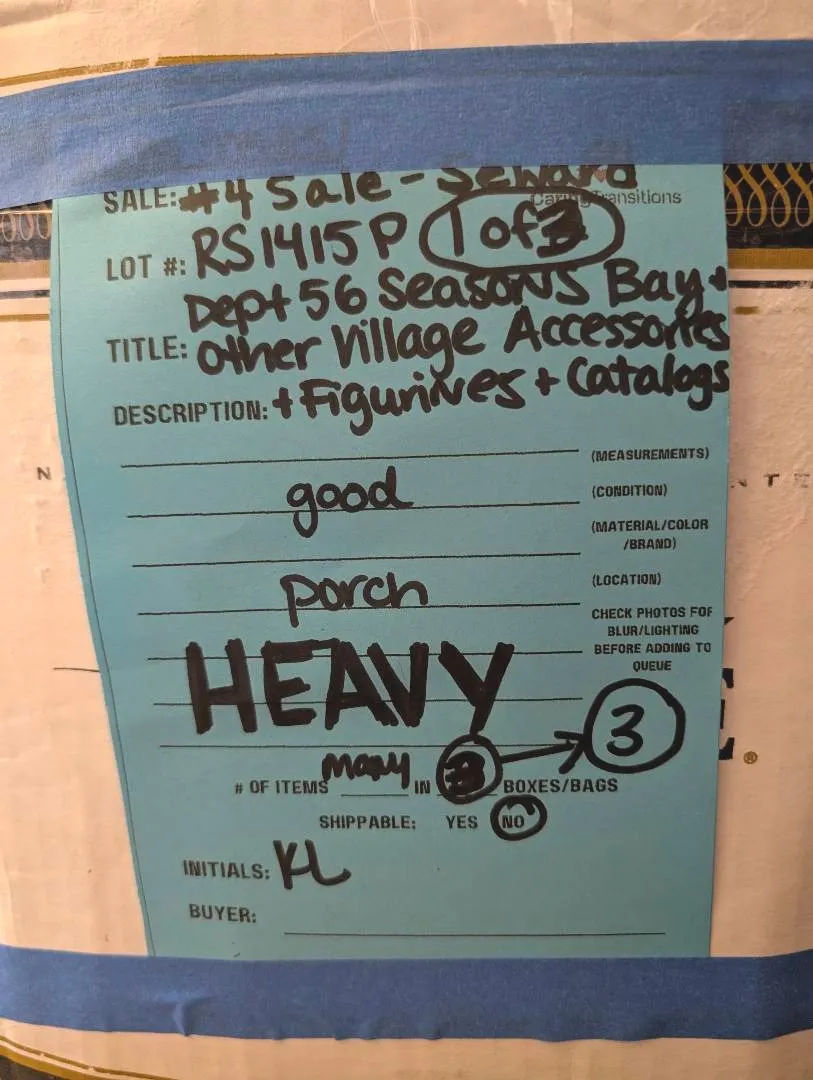 SALE: #4 Sale - Seward
Caring Transitions
LOT #: RS1415P 1 of 3
Dept 56 Seasons Bay +
TITLE: Other Village Accessories
DESCRIPTION: + Figurines + Catalogs
(MEASUREMENTS)
good (CONDITION)
(MATERIAL/COLOR
/BRAND)
porch (LOCATION)
CHECK PHOTOS FOR
BLUR/LIGHTING
BEFORE ADDING TO
QUEUE
HEAVY
3
# OF ITEMS many IN 3 BOXES/BAGS
SHIPPABLE: YES NO
INITIALS: KL
BUYER: